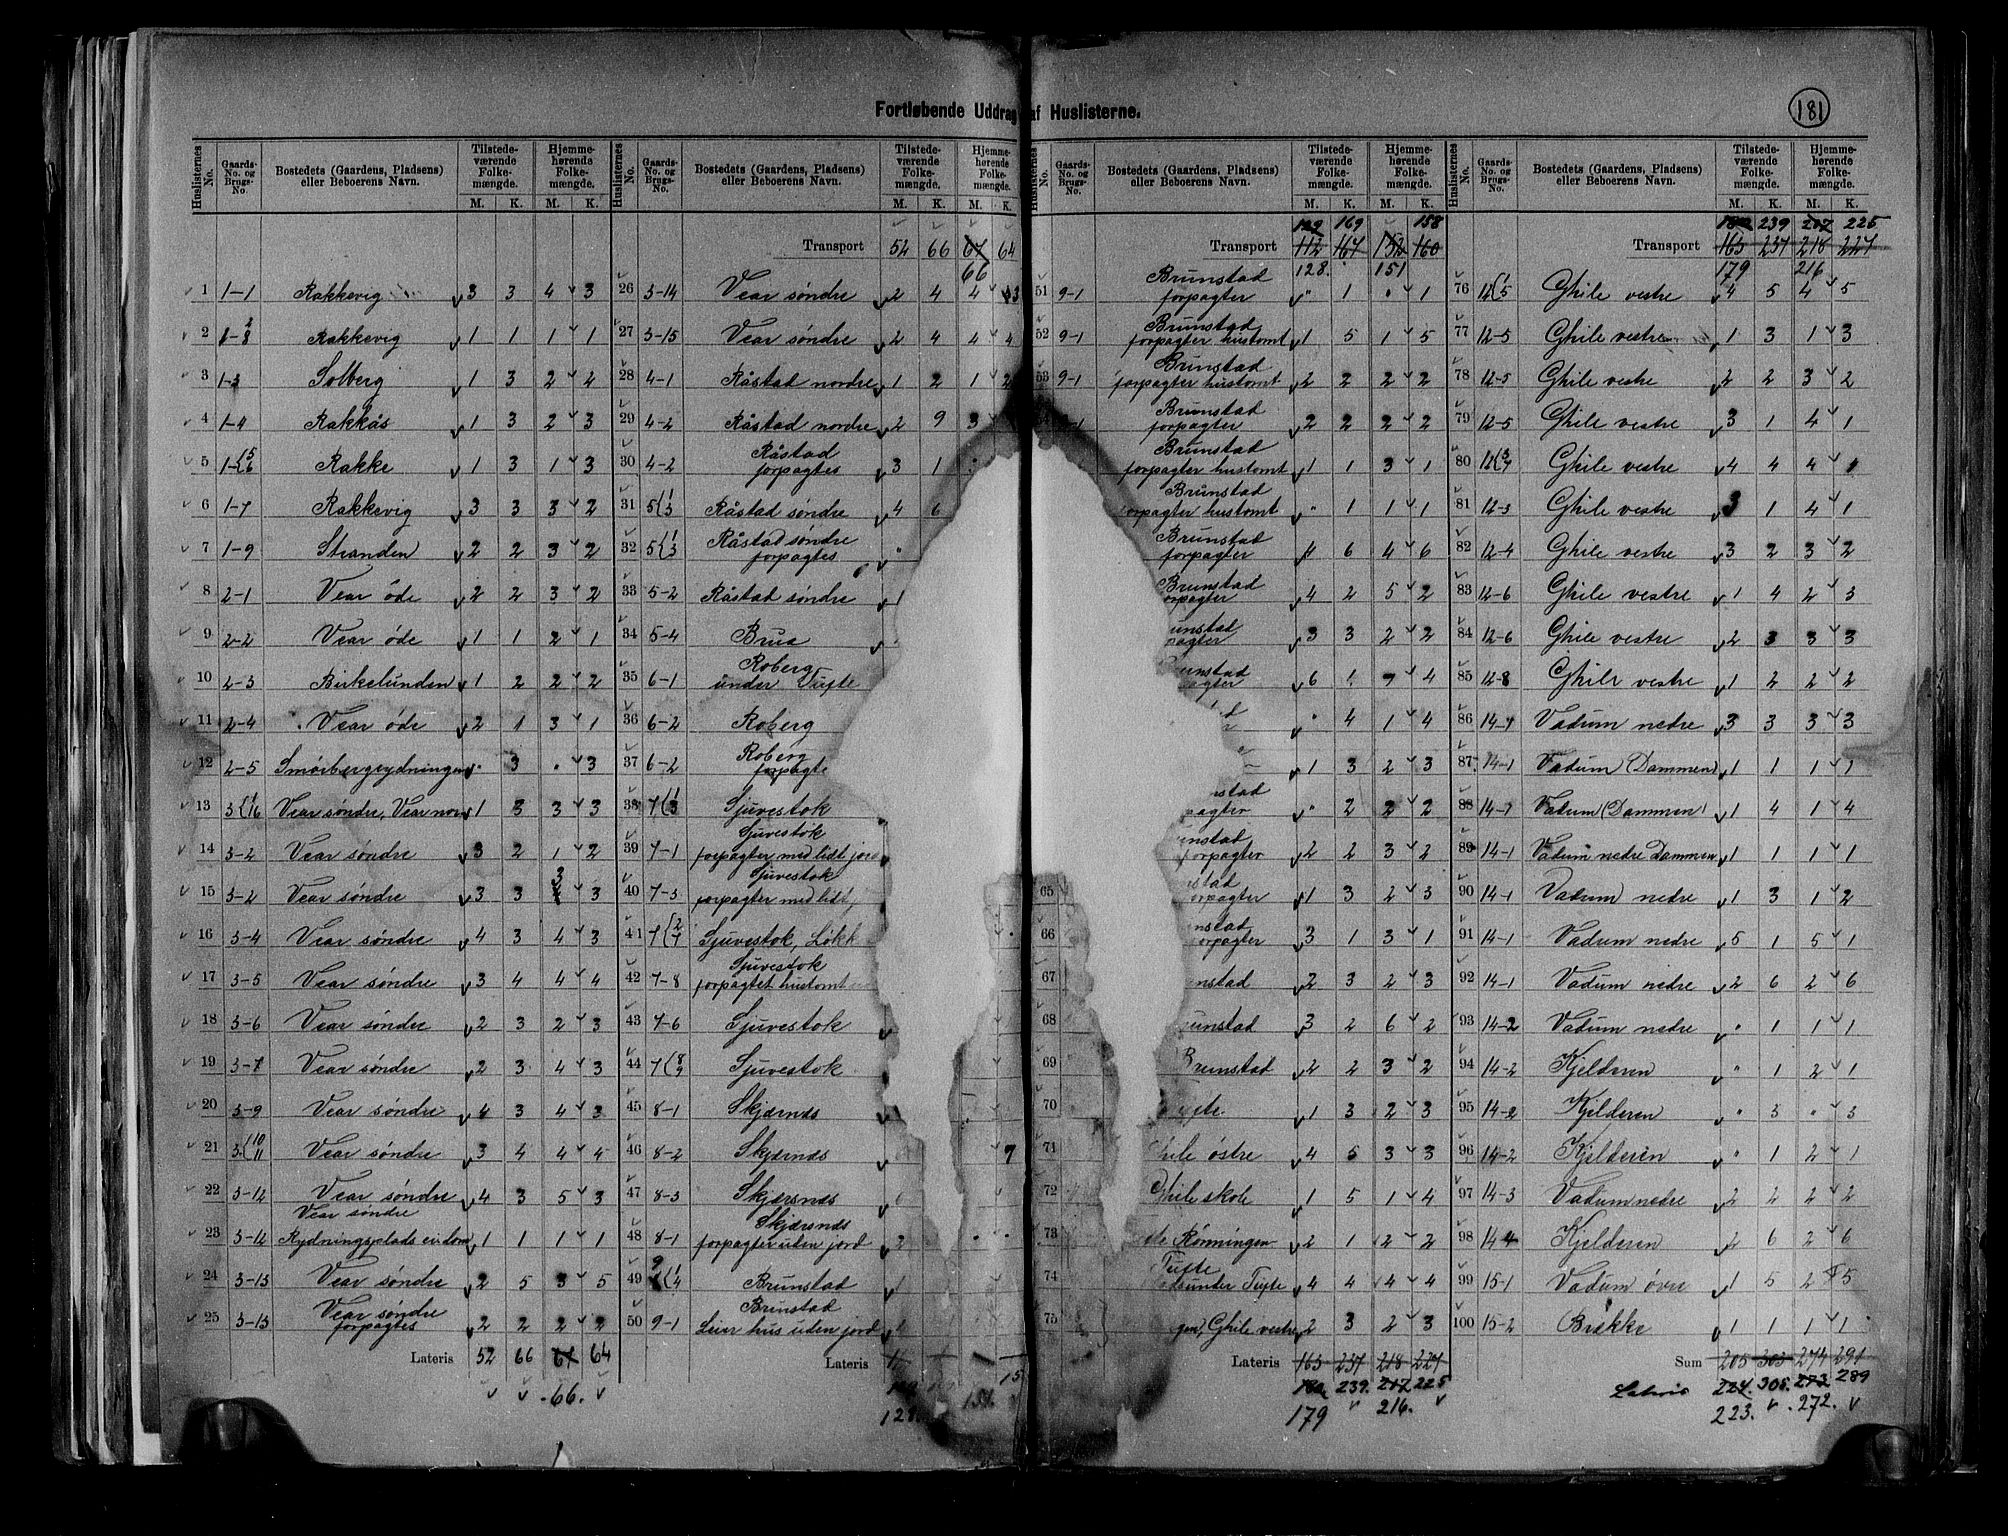 181
Fortløbende Uddrag af Huslisterne.
Huslisternes No. Gaards-No. og Brugs-No. Bostedets (Gaardens, Pladsens) eller Beboerens Navn. Tilstedeværende Folkemængde. M. K. Hjemmehørende Folkemængde. M. K.
1 1-1 Rakkevig 3 3 4 3
2 Rakkevig 1 1 1 1
3 1-3 Solberg 1 3 2 4
4 1-4 Rakkås 1 3 2 3
5 1-{5 6 Rakke 1 3 1 3
6 1-7 Rakkevig 3 3 3 2
7 1-9 Stranden 2 2 3 2
8 2-1 Vear öde 2 2 3 2
9 2-2 Vear öde 1 1 2 1
10 2-3 Birkelunden 1 2 2 2
11 2-4 Vear öde 2 1 3 1
12 2-5 Smörbergrydningen " 3 " 3
13 3{1 16 Vear söndre, Vear nor 1 3 3 3
14 3-2 Vear söndre 3 2 1 2
15 3-2 Vear söndre 3 3 3
16 3-4 Vear söndre 4 3 4 3
17 3-5 Vear söndre 3 4 4 4
18 3-6 Vear söndre 2 3 2 3
19 3-7 Vear söndre 2 3 4 3
20 3-9 Vear söndre 4 3 4 3
21 3{10 11 Vear söndre 3 4 4 4
22 3-12 Vear söndre 4 3 5 3
23 3-12 Vear söndre Rydningsplads eiendom 1 1 1 1
24 3-13 Vear söndre 2 5 3 5
25 3-13 Vear söndre forpagtes 2 2 2 2
Lateris 52 66 67 64
66.
Huslisternes No. Gaards-No. og Brugs-No. Bostedets (Gaardens, Pladsens) eller Beboerens Navn. Tilstedeværende Folkemængde. M. K. Hjemmehørende Folkemængde. M. K.
Transport 52 66 67 64
66
26 3-14 Vear söndre 2 4 4 3
27 3-15 Vear söndre 2 4 4 4
28 4-1 Råstad nordre 1 2 1 2
29 4-2 Råstad nordre 2 9 3
30 4-2 Råstad forpagtes 3 1
31 5{1 3 Råstad söndre 4 6
32 5{1 3 Råstad söndre forpagtes "
33 5-2 Råstad söndre 1
34 5-4 Brua
35 6-1 Roberg under Tufte
36 6-2 Roberg
37 6-2 Roberg forpagte
38 7{1 3 Sjuvestok
39 7-1 Sjuvestok forpagter med lidt jord
40 7-3 Sjuvestok forpagter med lidt
41 7{2 7 Sjuvestok, Løkk
42 7-8 Sjuvestok forpagtet hustomt
43 7-6 Sjuvestok
44 7{8 9 Sjuvestok
45 8-1 Skjærnæs
46 8-2 Skjærnæs 7
47 8-3 Skjærsnæs
48 8-1 Skjærsnæs forpagter uden jord 2
49 9{1 4 Brunstad 1
50 9-1 Brunstad Leier hus uden jord
Lateris
128 151.
Huslisternes No. Gaards-No. og Brugs-No. Bostedets (Gaardens, Pladsens) eller Beboerens Navn. Tilstedeværende Folkemængde. M. K. Hjemmehørende Folkemængde. M. K.
129 169 158
Transport 112 167 152 160
128. 151
51 9-1 Brunstad forpagter " 1 " 1
52 9-1 Brunstad forpagter hustomt 1 5 1 5
53 9-1 Brunstad forpagter hustomt 2 2 2 2
Brunstad forpagter 2 2 2 2
Brunstad forpagter hustomt 1 1 3 1
Brunstad forpagter hustomt " 1 1 1
Brunstad forpagter 4 6 4 6
Brunstad orpagter 4 2 5 2
unstad pagter 3 3 2 2
unstad pagter 6 1 7 4
" 4 1 4
1 3 2 3
stad pagter " 2 2 2
unstad forpagter 2 2 3 2
65 stad orpagter 1 3 2 3
66 nstad orpagter 3 1 3 1
67 nstad 2 3 2 3
68 unstad 3 2 6 2
69 Brunstad 2 2 3 2
70 fte 1 3 2 3
71 Ghile östre 4 5 3 3
72 Ghile skole 1 5 1 4
73 Rönningen 2 1 2 2
74 Tufte under Tufte 4 4 4 4
75 gen, Ghile vestre 2 3 2 3
Lateris 163 237 218 227
180 239. 217 225
179 216.
Huslisternes No. Gaards-No. og Brugs-No. Bostedets (Gaardens, Pladsens) eller Beboerens Navn. Tilstedeværende Folkemængde. M. K. Hjemmehørende Folkemængde. M. K.
180 239 217 225
Transport 163 237 218 227
179 216
76 12{1 5 Ghile vestre 4 5 4 5
77 12-5 Ghile vestre 1 3 1 3
78 12-5 Ghile vestre 2 2 3 2
79 12-5 Ghile vestre 3 1 4 1
80 Ghile vestre 4 4 4
81 12-3 Ghile vestre 3 1 4 1
82 12-4 Ghile vestre 3 2 3 2
83 12-6 Ghile vestre 1 4 2 3
84 12-6 Ghile vestre 2 3 3 3
85 12-8 Ghile vestre 1 2 2 2
86 14-1 Vadum nedre 3 3 3 3
87 14-1 Vadum (Dammen) 1 1 1 1
88 14-1 Vadum (Dammen) 1 4 1 4
89 14-1 Vadum nedre Dammen 1 1 1 1
90 14-1 Vadum nedre 1 3 1 2
91 14-1 Vadum nedre 5 1 5 1
92 14-1 Vadum nedre 2 6 2 6
93 14-2 Vadum nedre " 1 1 1
94 14-2 Kjelderen " 1 2 1
95 14-2 Kjelderen " 3 " 3
96 14-2 Kjelderen " 1 2 1
97 14-3 Vadum nedre 2 2 2 2
98 14-4 Kjelderen 2 6 2 6
99 15-1 Vadum övre 1 5 2 5
100 15-2 Brekke 1 1 1 1
Sum 205 303 274 291
Lateris 224. 305. 273 289
223. 272.